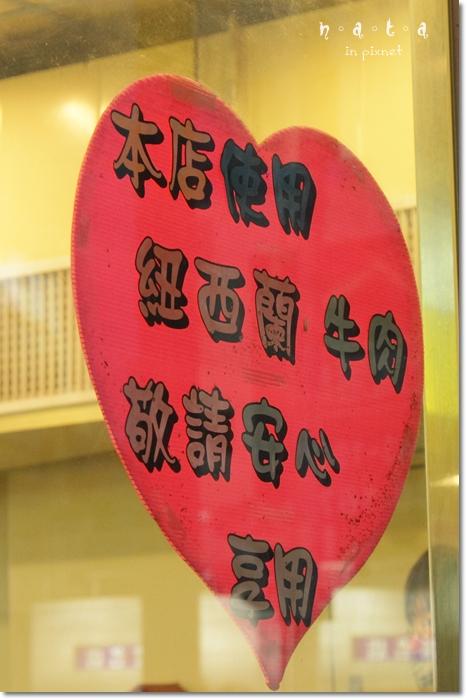 h·a·t·a
in pixnet
本店使用
紐西蘭牛肉
敬請安心
享用